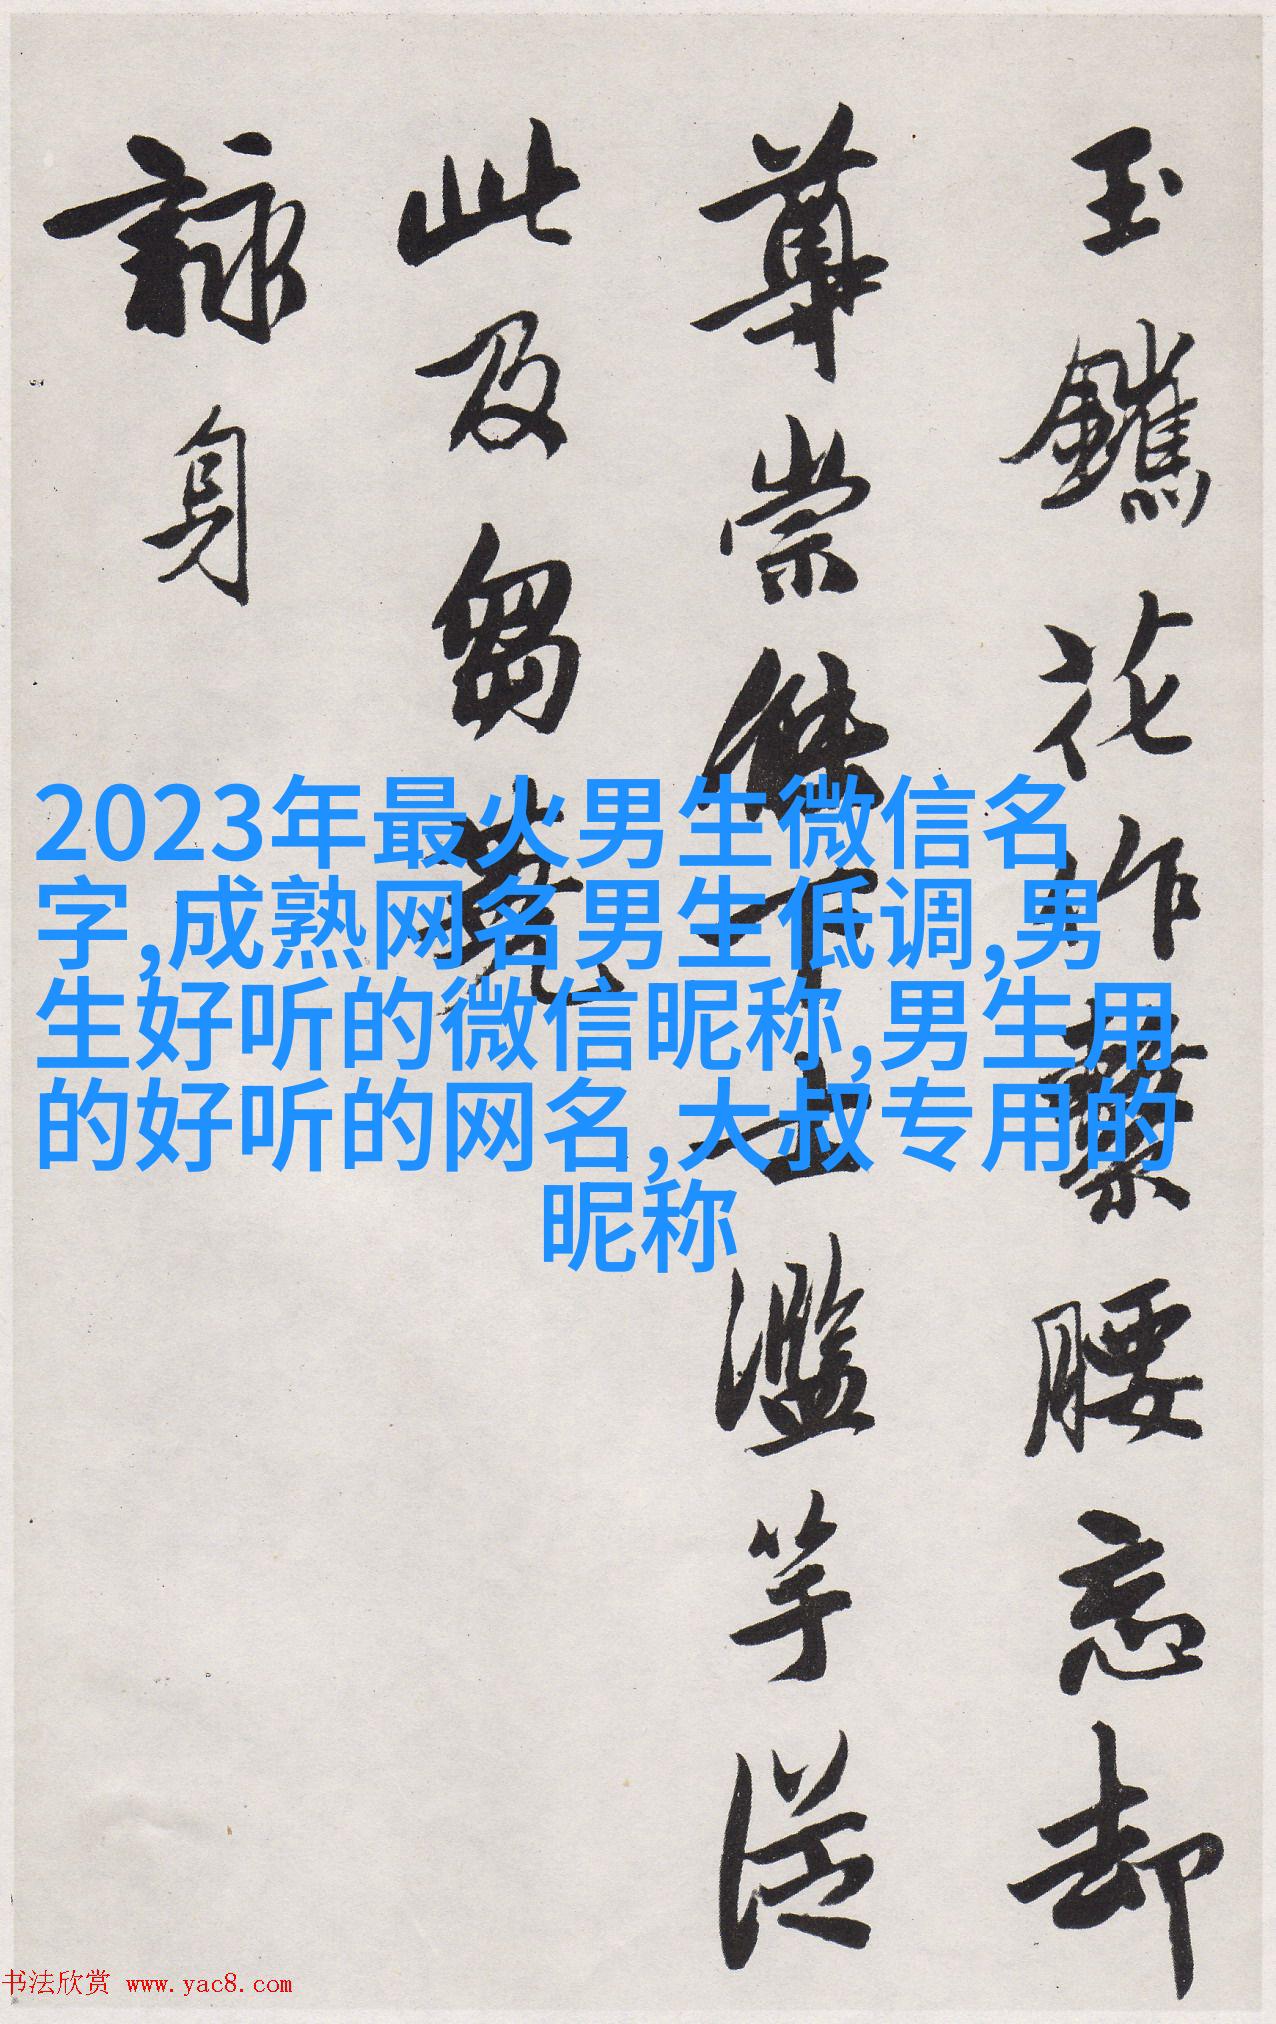 玉花作腰忘却
尊崇下士濫竽從
此及芻蕘
詠身
2023年最火男生微信名
字,成熟网名男生低调,男
生好听的微信昵称,男生用
的好听的网名,大叔专用的
昵称
书法欣赏 www.yac8.com